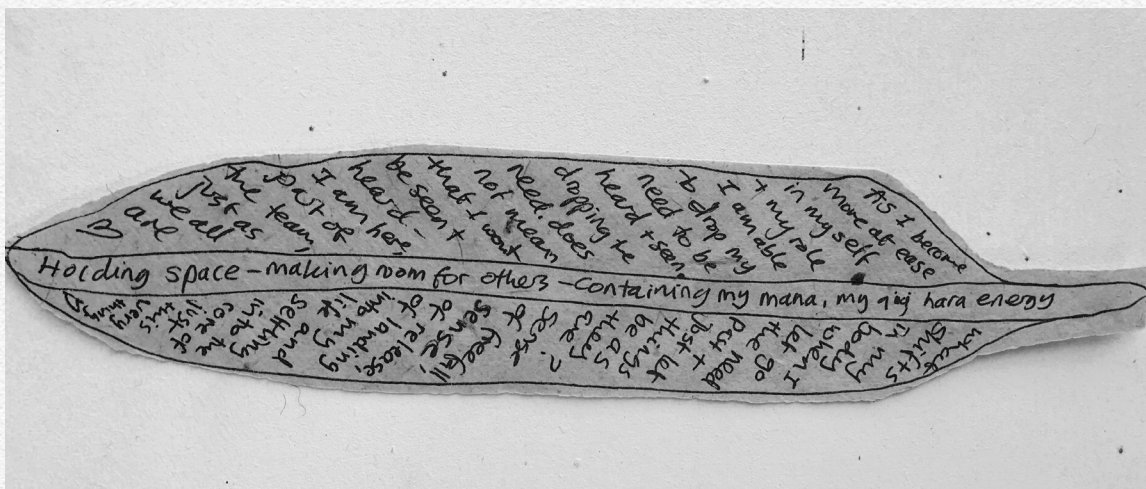 As I become
more at ease
in my self
+ my role
I am able
to drop my
need to be
heard + seen.
dropping the
need. does
not mean
that I wont
be seen +
heard -
I am here,
Part of
the team,
just as
we all
are
Holding space – making room for others – containing my mana, my hara energy
what
shifts
in my
body
when I
let go
the
need
+
Just let
things
be as
they
are?
sense
of
freefall,
sense
of release,
of landing
into my
life and
settling
into the
core of
just
this
very